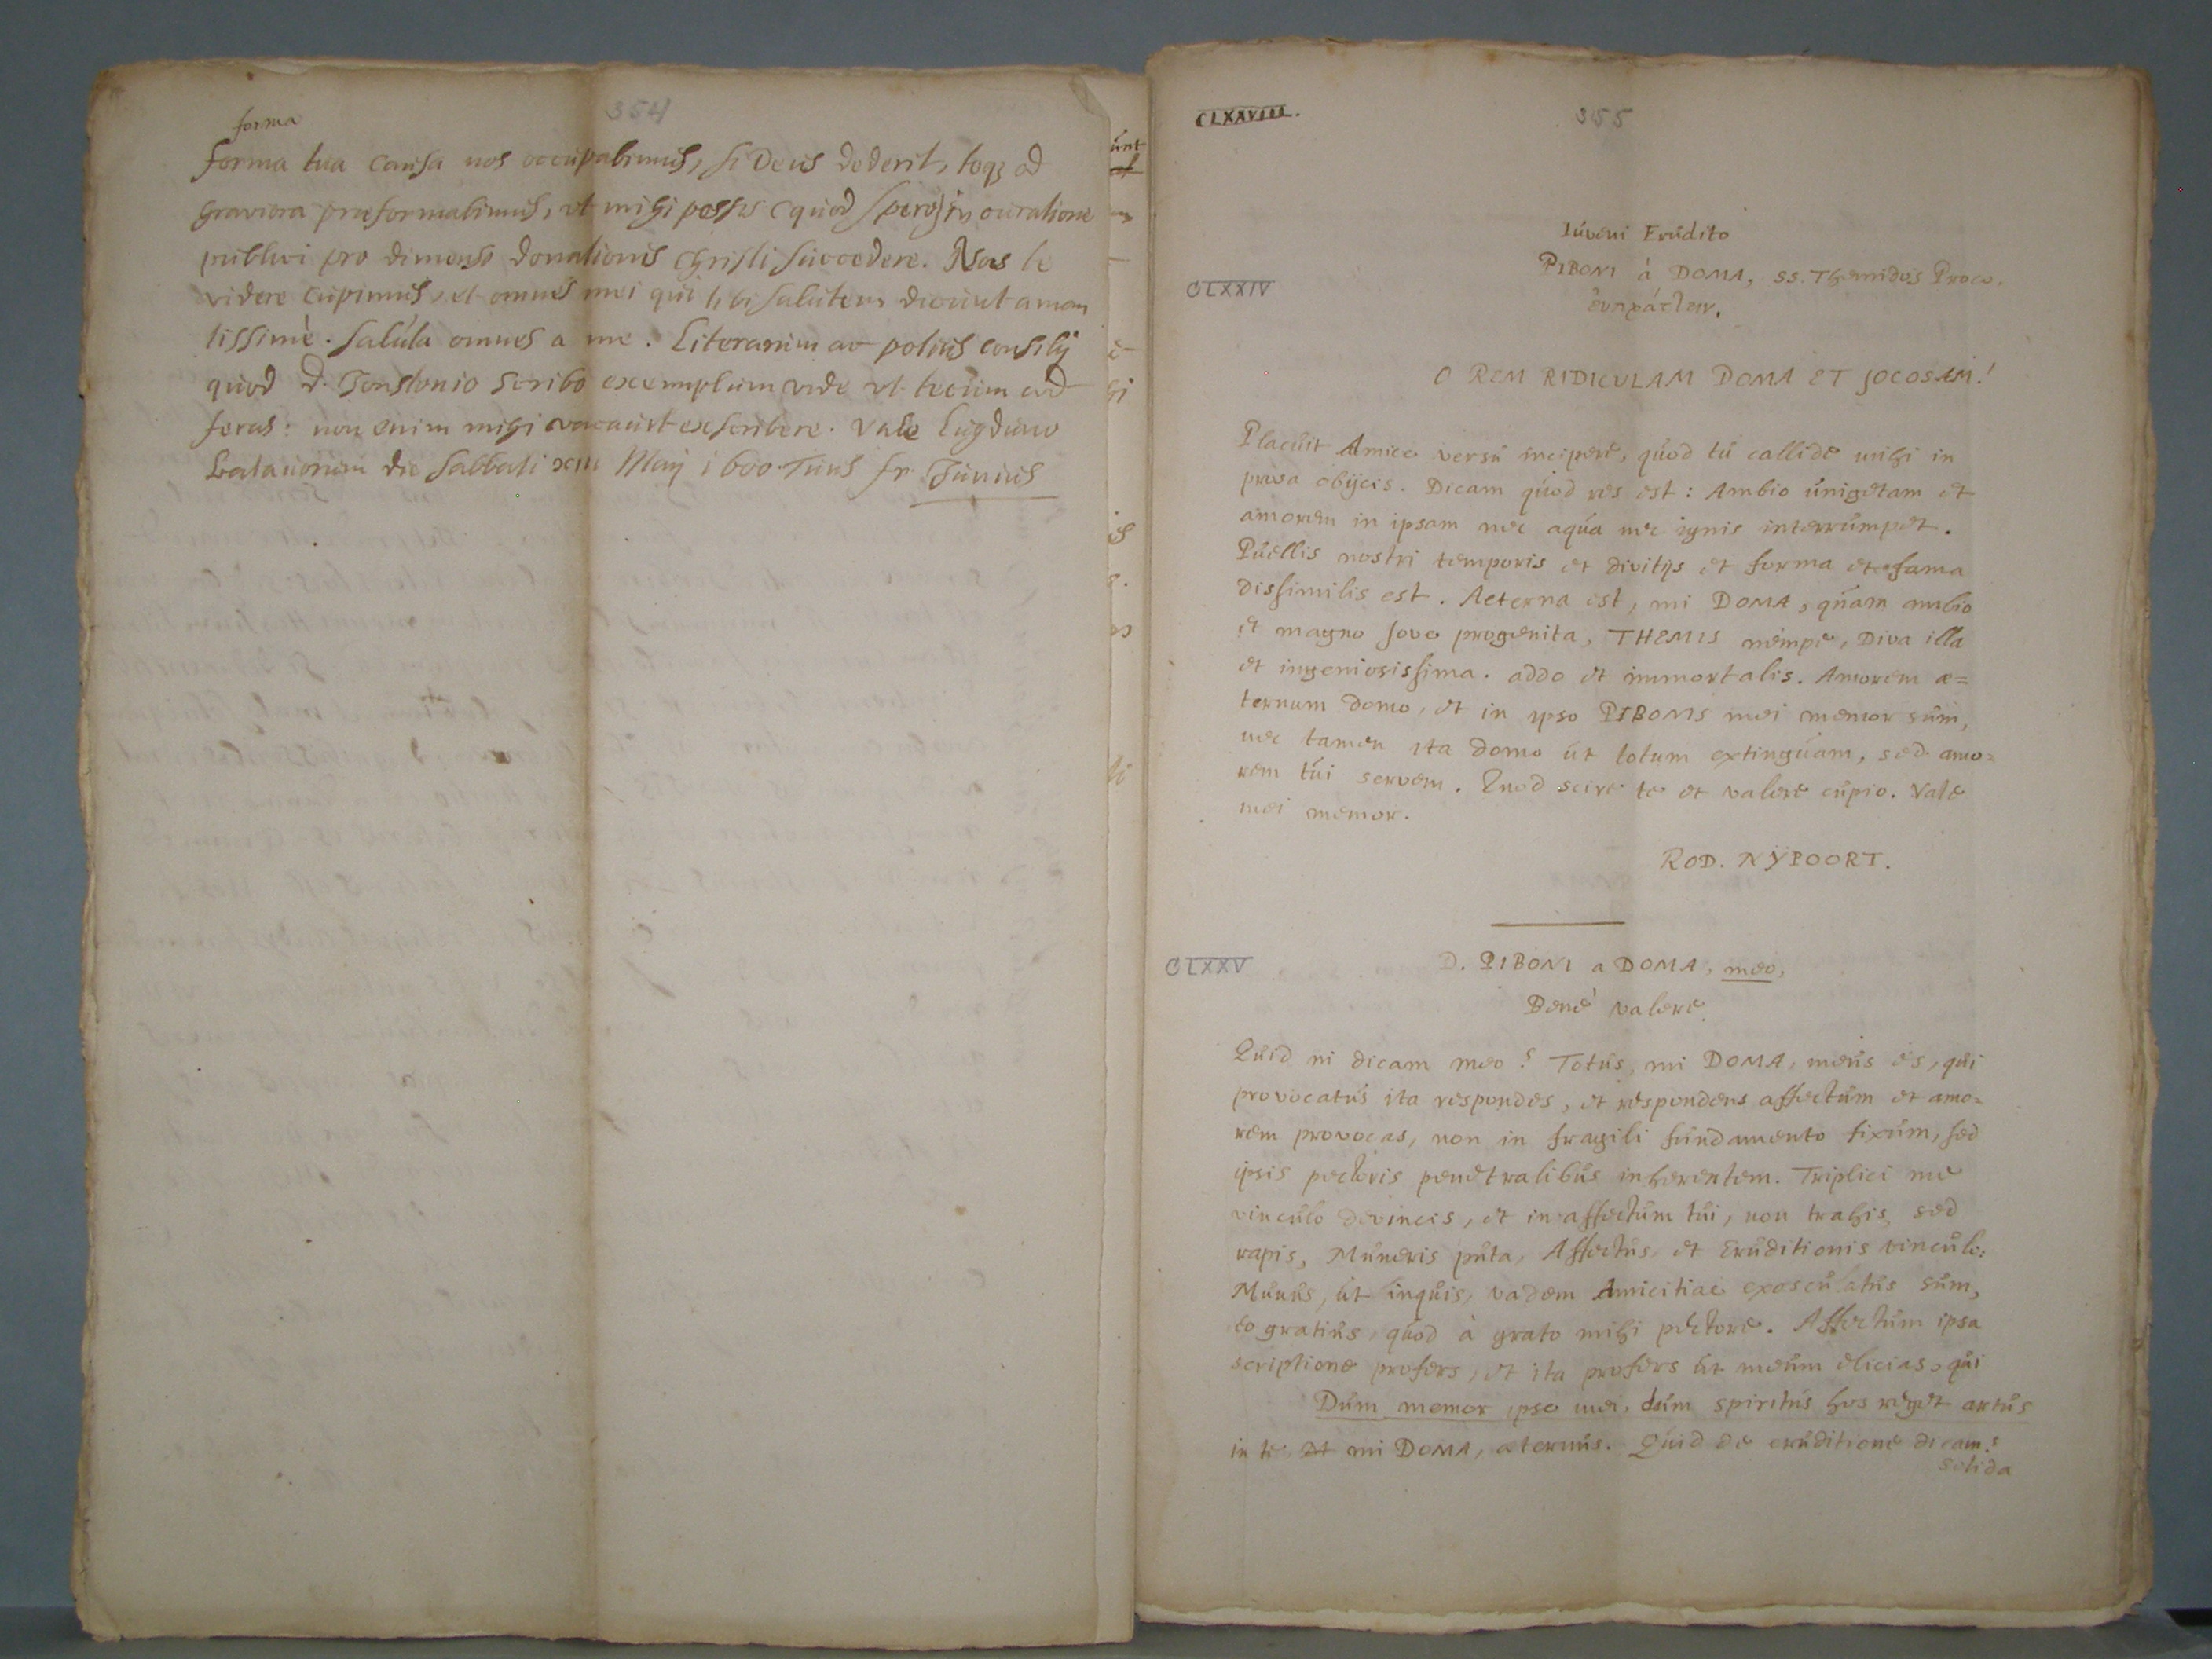 354
forma
forma tua causa nos occupabimus, si Deus dederit, teq3 ad
graviora praeformabimus, ut mihi possis (quod spero) in curatione
publici pro dimenso donationis Christi succedere. Nos te
videre cupimus, et omnes mei qui tibi salutem dicunt aman
tissimè. Saluta omnes a me. Literarum ac potius consilij
quod D. Jonstonio scribo exemplum vide ut tecum
feras: non enim mihi vacavit exscribere. Vale Lugduno
Batavorum die Sabbati xiii Maij 1600. Tuus fr. Junius
CLXXVIII.
355
Iúveni Erúdito
CLXXIV
PIBONI à DOMA, SS. Themidos Proco.
ἐυπράττειν.
O REM RIDICULAM DOMA ET JOCOSAM!
Placúit Amice versú incipere, qúod tú callide mihi in
prosa obijcis. Dicam qúod res est: Ambio únigetam et
amorem in ipsam nec aqúa nec ignis interrúmpet.
Púellis nostri temporis et divitijs et forma et fama
dissimilis est. Aeterna est, mi DOMA, qúam ambio
et magno Jove progenita, THEMIS nempe, Diva illa
et ingeniosissima. addo et immortalis. Amorem æ=
ternum domo, et in ipso PIBONIS mei memor súm,
nec tamen ita domo út totum extingúam, sed amo=
rem túi servem. Quod scire te et valere cúpio. Vale
mei memor.
ROD. NYPOORT.
CLXXV
D. PIBONI a DOMA, meo,
Bene valere.
Qúid ni dicam meo? Totús, mi DOMA, meús es, qúi
provocatús ita respondes, et respondens affectúm et amo=
rem provocas, non in fragili fúndamento fixúm, sed
ipsis pectoris penetralibús inherentem. Triplici me
vincúlo devincis, et in affectúm túi, non trahis sed
rapis, Múneris púta, Affectús, et Erúditionis vincúlo:
Munús, út inqúis, vadem Amicitiae exoscúlatús súm,
eo gratiús, qúod à grato mihi pectore. Affectúm ipsa
scriptione profers, et ita profers út meúm elicias, qúi
Dúm memor ipse mei, dúm spiritús hos reget artús
in te mi DOMA, æternús. Qúid de erúditione dicam?
solida